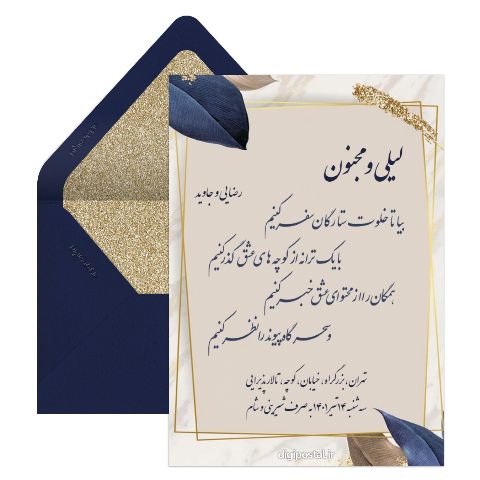 لیلی و مجنون
رضایی و جاوید
بیا تا خلوت ستارگان سفر کنیم
با یک ترانه از کوچه های عشق گذر کنیم
همگان را از محتوای عشق خبر کنیم
و سحرگاه پیوند را نظر کنیم
تهران، بزرگراه، خیابان، کوچه، تالار پذیرایی
سه شنبه ۱۴ تیر ۱۴۰۱ به صرف شیرینی و شام
digipostal.ir